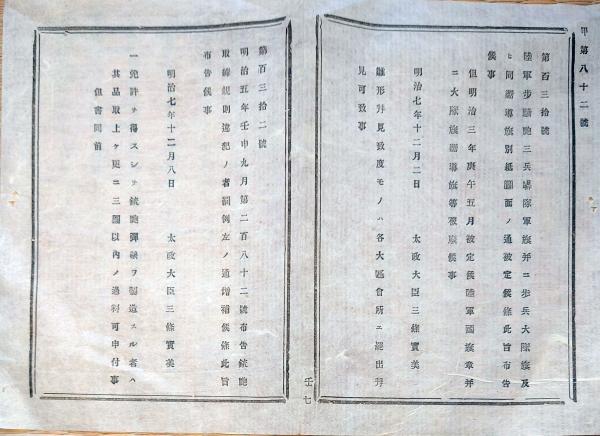 甲第八十二號
第百三拾號
陸軍歩騎砲三兵聯隊軍旗并ニ歩兵大隊旗及
ヒ同嚮導旗別紙圖面ノ通被定候條此旨布告
候事
但明治三年庚午五月被定候陸軍國旗章并
ニ大隊旗嚮導旗等被廢候事
明治七年十二月二日　太政大臣三條實美
雛形拝見致度モノハ各大區會所ニ罷出拝
見可致事
第百三拾二號
明治五年壬申九月第二百八十二號布告銃砲
取締規則違犯ノ者罰例左ノ通増補候條此旨
布告候事
明治七年十二月八日　太政大臣三條實美
一免許ヲ得スシテ銃砲彈藥ヲ製造スル者ハ
其品取上ケ更ニ三圓以内ノ過料可申付事
但書同前
壬七